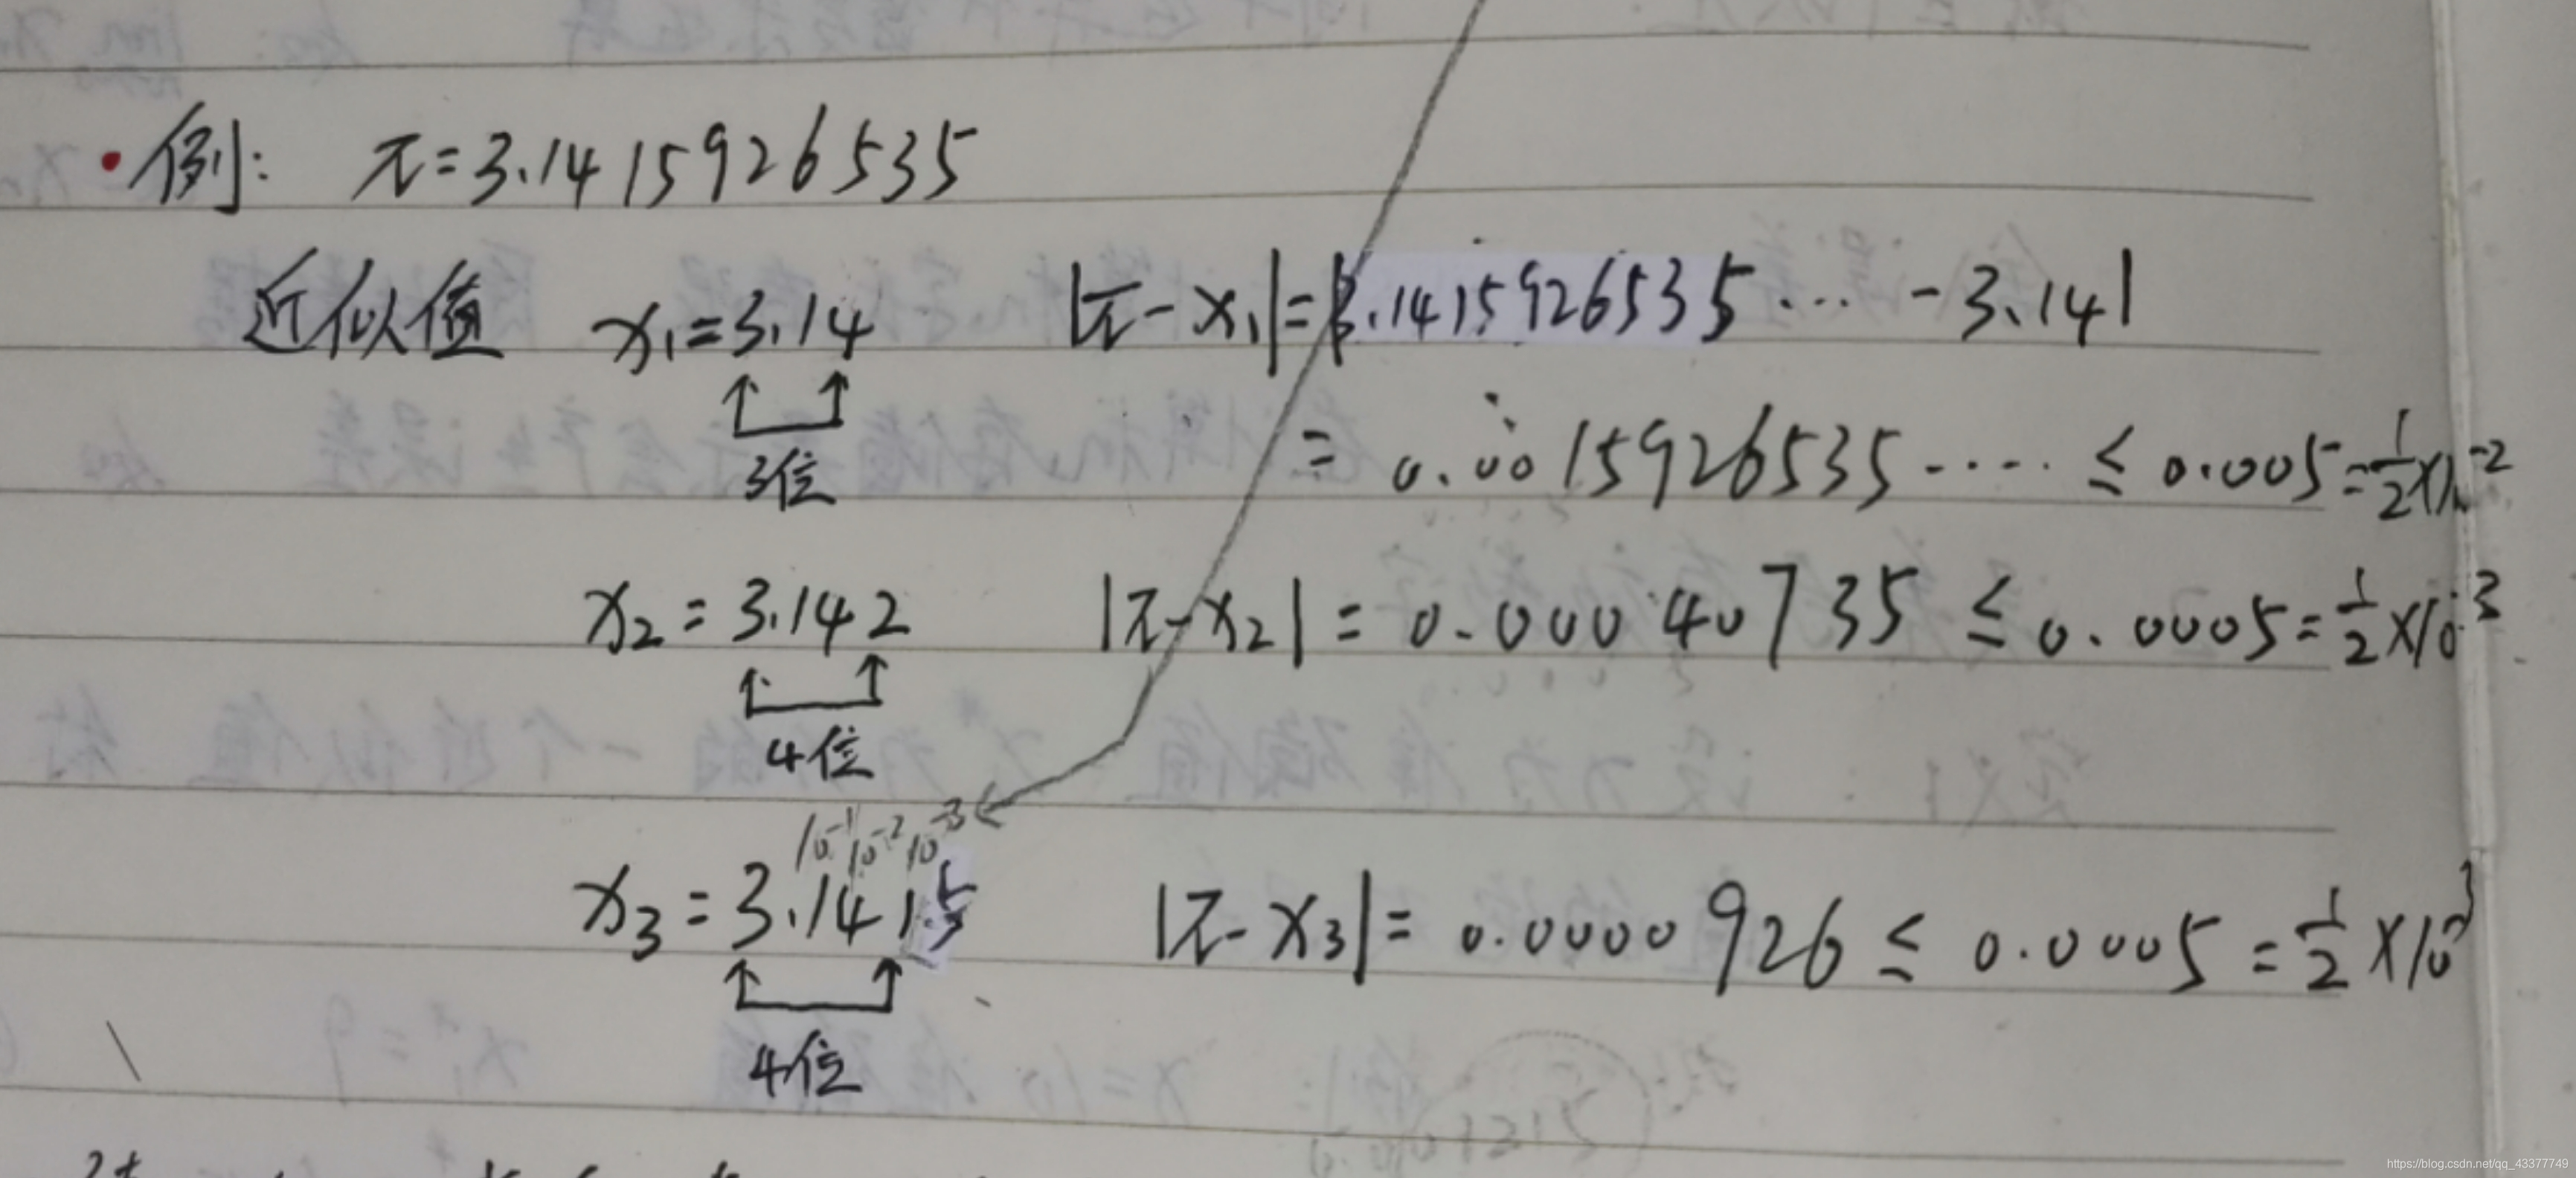 ·例: π=3.1415926535
近似值 x₁=3.14 |π-x₁|=|3.1415926535...-3.14|
3位 = 0.0015926535..... ≤ 0.005=½×10⁻²
x₂=3.142 |π-x₂|=0.00040735 ≤ 0.0005=½×10⁻³
4位
10⁻¹ 10⁻² 10⁻³
x₃=3.1415 |π-x₃|=0.0000926 ≤ 0.0005=½×10⁻³
4位
https://blog.csdn.net/qq_43377749